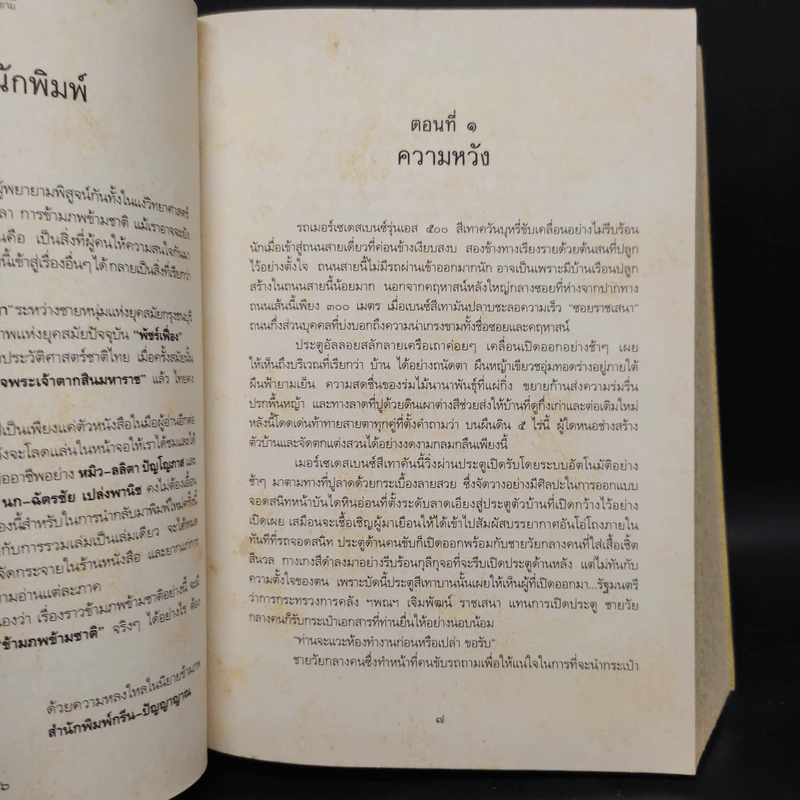 นักพิมพ์
ผู้พยายามพิสูจน์กันทั้งในแง่วิทยาศาสตร์
การข้ามภพข้ามชาติ แม้เราอาจจะยัง
นคือ เป็นสิ่งที่ผู้คนให้ความสนใจกันมา
นี้เข้าสู่เรื่องอื่นๆ ได้กลายเป็นสิ่งที่เรียกว่า
ระหว่างชายหนุ่มแห่งยุคสมัยกรุงธนบุรี
าพแห่งยุคสมัยปัจจุบัน "พัชร์เฟื่อง"
ประวัติศาสตร์ชาติไทย เมื่อครั้งสมัยนั้น
จพระเจ้าตากสินมหาราช" แล้ว ไทยคง
เป็นเพียงแค่ตัวหนังสือในมือผู้อ่านอีกต่อ
จะโลดแล่นในหน้าจอให้เราได้ชมและได้
อาชีพอย่าง หมิว-ลลิตา ปัญโญภาส และ
นก-ฉัตรชัย เปล่งพานิช คงไม่ต้องเอื้อน
องนี้สำหรับในการนำกลับมาพิมพ์ใหม่ครั้งนี้
กับการรวมเล่มเป็นเล่มเดียว จะได้หมด
จัดกระจายในร้านหนังสือ และยากแก่การ
ามอ่านแต่ละภาค
องว่า เรื่องราวข้ามภพข้ามชาติอย่างนี้ จะมี
"ข้ามภพข้ามชาติ" จริงๆ ได้อย่างไร ต้อง
ด้วยความหลงใหลในนิยายข้ามภพ
สำนักพิมพ์กรีน-ปัญญาญาณ
๖
ตอนที่ ๑
ความหวัง
รถเมอร์เซเดสเบนซ์รุ่นเอส ๕๐๐ สีเทาควันบุหรี่ขับเคลื่อนอย่างไม่รีบร้อน
นักเมื่อเข้าสู่ถนนสายเดี่ยวที่ค่อนข้างเงียบสงบ สองข้างทางเรียงรายด้วยต้นสนที่ปลูก
ไว้อย่างตั้งใจ ถนนสายนี้ไม่มีรถผ่านเข้าออกมากนัก อาจเป็นเพราะมีบ้านเรือนปลูก
สร้างในถนนสายนี้น้อยมาก นอกจากคฤหาสน์หลังใหญ่กลางซอยที่ห่างจากปากทาง
ถนนเส้นนี้เพียง ๓๐๐ เมตร เมื่อเบนซ์สีเทามันปลาบชะลอความเร็ว "ซอยราชเสนา"
ถนนกึ่งส่วนบุคคลที่บ่งบอกถึงความน่าเกรงขามทั้งชื่อซอยและคฤหาสน์
ประตูอัลลอยสลักลายเครือเถาค่อยๆ เคลื่อนเปิดออกอย่างช้าๆ เผย
ให้เห็นถึงบริเวณที่เรียกว่า บ้าน ได้อย่างถนัดตา ผืนหญ้าเขียวชอุ่มทอดร่างอยู่ภายใต้
ผืนฟ้ายามเย็น ความสดชื่นของร่มไม้นานาพันธุ์ที่แผ่กิ่ง ขยายก้านส่งความร่มรื่น
ปรกพื้นหญ้า และทางลาดที่ปูด้วยดินเผาต่างสีช่วยส่งให้บ้านที่ดูกึ่งเก่าและต่อเติมใหม่
หลังนี้โดดเด่นท้าทายสายตาทุกคู่ที่ตั้งคำถามว่า บนผืนดิน ๕ ไร่นี้ ผู้ใดหนอช่างสร้าง
ตัวบ้านและจัดตกแต่งสวนได้อย่างงดงามกลมกลืนเพียงนี้
เมอร์เซเดสเบนซ์สีเทาคันนี้วิ่งผ่านประตูเปิดรับโดยระบบอัตโนมัติอย่าง
ช้าๆ มาตามทางที่ปูลาดด้วยกระเบื้องลายสวย ซึ่งจัดวางอย่างมีศิลปะในการออกแบบ
จอดสนิทหน้าบันไดหินอ่อนที่ตั้งระดับลาดเอียงสู่ประตูตัวบ้านที่เปิดกว้างไว้อย่าง
เปิดเผย เสมือนจะเชื้อเชิญผู้มาเยือนให้ได้เข้าไปสัมผัสบรรยากาศอันโอ่โถงภายใน
ทันทีที่รถจอดสนิท ประตูด้านคนขับก็เปิดออกพร้อมกับชายวัยกลางคนที่ใส่เสื้อเชิ้ต
สีนวล กางเกงสีดำลงมาอย่างรีบร้อนกุลีกุจอที่จะรีบเปิดประตูด้านหลัง แต่ไม่ทันกับ
ความตั้งใจของตน เพราะบัดนี้ประตูสีเทาบานนั้นเผยให้เห็นผู้ที่เปิดออกมา...รัฐมนตรี
ว่าการกระทรวงการคลัง ฯพณฯ เจิมพัฒน์ ราชเสนา แทนการเปิดประตู ชายวัย
กลางคนก็รับกระเป๋าเอกสารที่ท่านยื่นให้อย่างนอบน้อม
"ท่านจะแวะห้องทำงานก่อนหรือเปล่า ขอรับ"
ชายวัยกลางคนซึ่งทำหน้าที่คนขับรถถามเพื่อให้แน่ใจในการที่จะนำกระเป๋า
๗